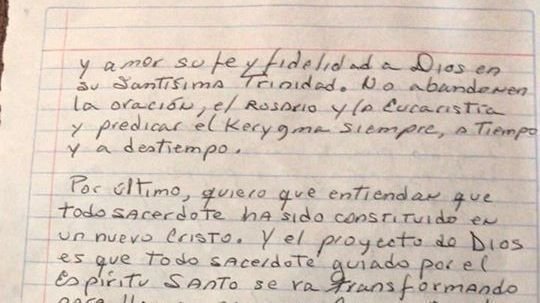 y amor su fe y fidelidad a Dios en
su Santísima Trinidad. No abandonen
la oración, el Rosario y la Eucaristía
y predicar el Kerygma siempre, a Tiempo
y a destiempo.
Por último, quiero que entiendan que
todo sacerdote ha sido constituido en
un nuevo Cristo. Y el proyecto de Dios
es que todo sacerdote guiado por el
Espíritu Santo se va transformando
para